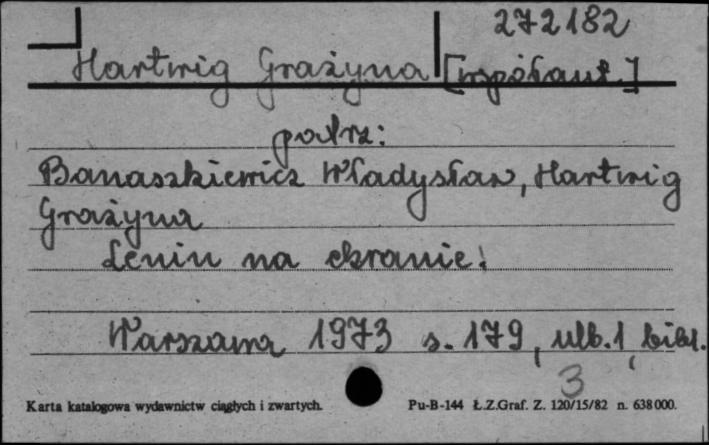 272182
Hartwig Grażyna [współaut.]
patrz:
Banaszkiewicz Władysław, Hartwig
Grażyna
Lenin na ekranie.
Warszawa 1973 s. 179, nlb. 1, bibl.
3
Karta katalogowa wydawnictw ciągłych i zwartych. Pu-B-144 Ł.Z.Graf. Z. 120/15/82 n. 638000.